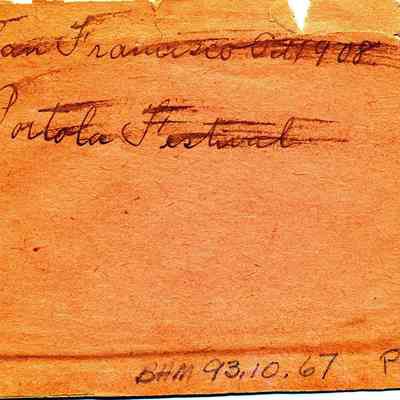 San Francisco Oct 1908.
Portola Festival
BHM 93.10.67 P